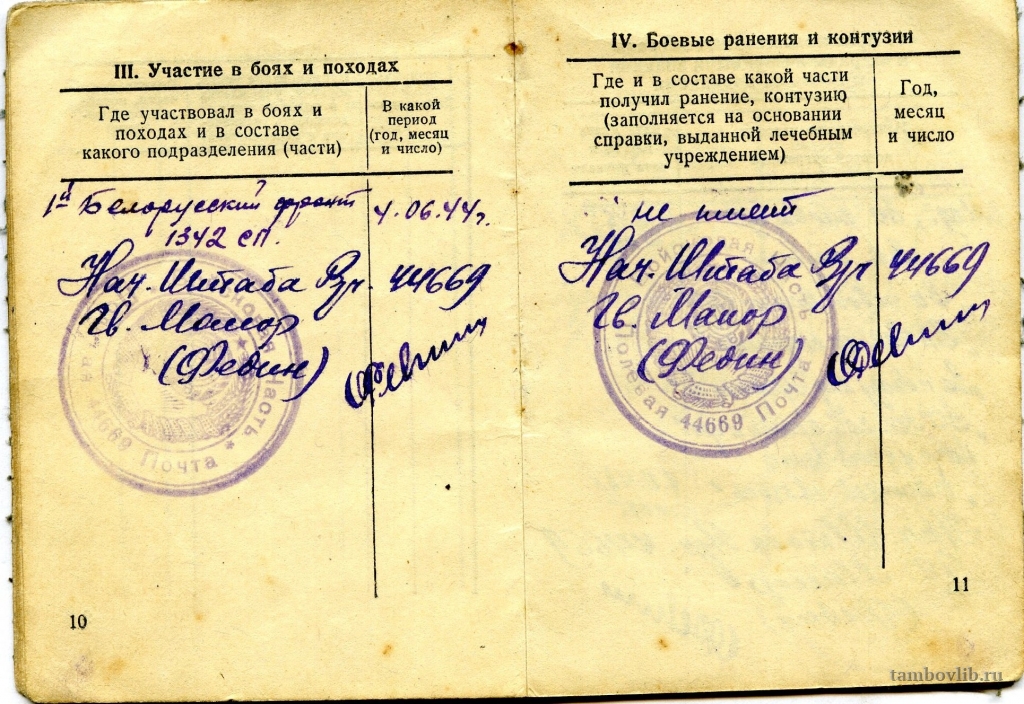 III. Участие в боях и походах
Где участвовал в боях и
походах и в составе
какого подразделения (части)
В какой
период
(год, месяц
и число)
1й Белорусский фронт
1342 сп.
4.06.44 г.
Нач. Штаба Вч. 44669
Гв. Маиор
(Федин)
Часть
44669 Почта
10
IV. Боевые ранения и контузии
Где и в составе какой части
получил ранение, контузию
(заполняется на основании
справки, выданной лечебным
учреждением)
Год,
месяц
и число
не имеет
Нач. Штаба Вч 44669
Гв. Маиор
(Федин)
Войсковая Часть
Полевая 44669 Почта
11
tambovlib.ru